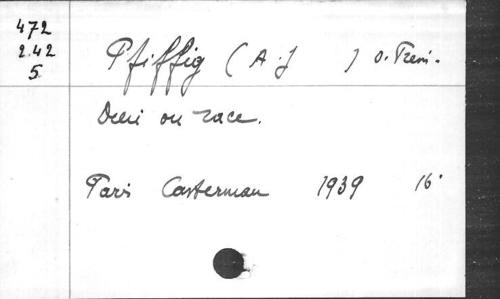 472
2.42
5
Pfiffig (A.J ) O. Prem.
Dieu ou race.
Paris Casterman 1939 16°